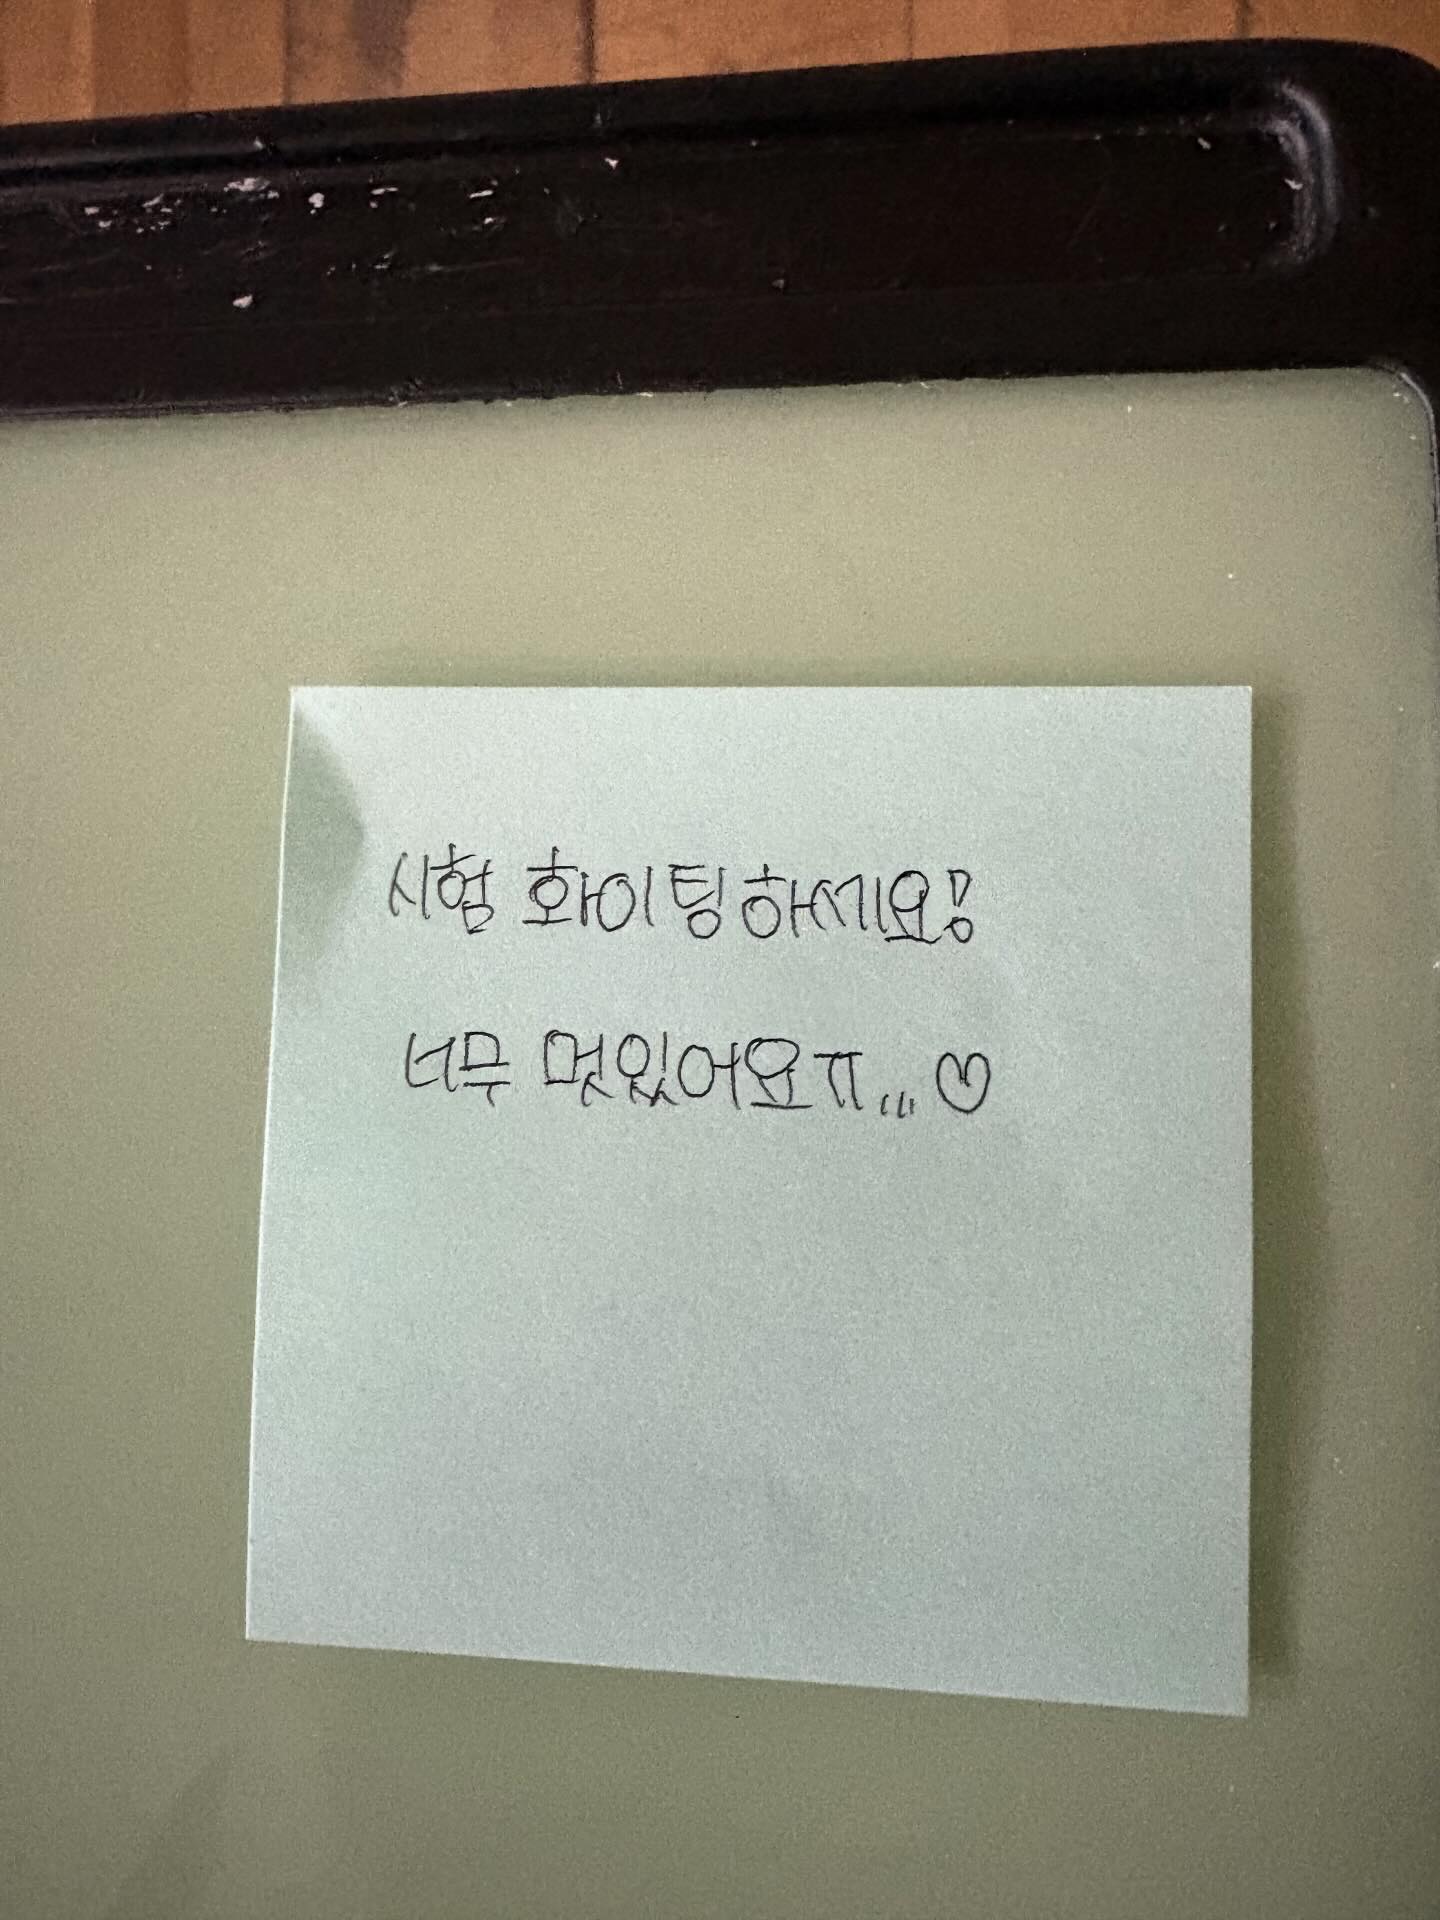 시험 화이팅하세요!
너무 멋있어요ㅠ...♡